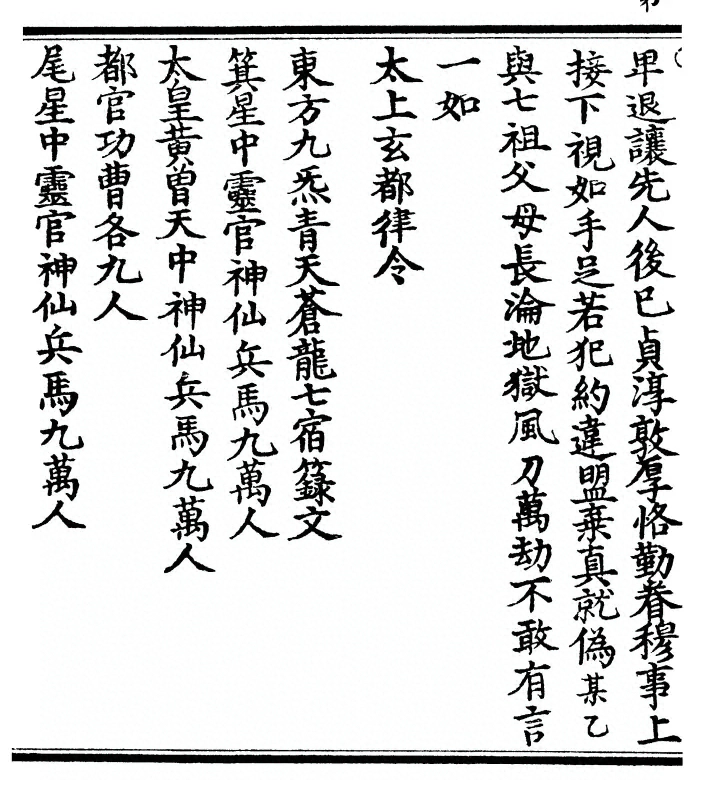 卑退讓先人後己貞淳敦厚恪勤眷穆事上
接下視如手足若犯約違盟棄真就偽某乙
與七祖父母長淪地獄風刀萬劫不敢有言
一如
太上玄都律令
東方九炁青天蒼龍七宿籙文
箕星中靈官神仙兵馬九萬人
太皇黃曾天中神仙兵馬九萬人
都官功曹各九人
尾星中靈官神仙兵馬九萬人